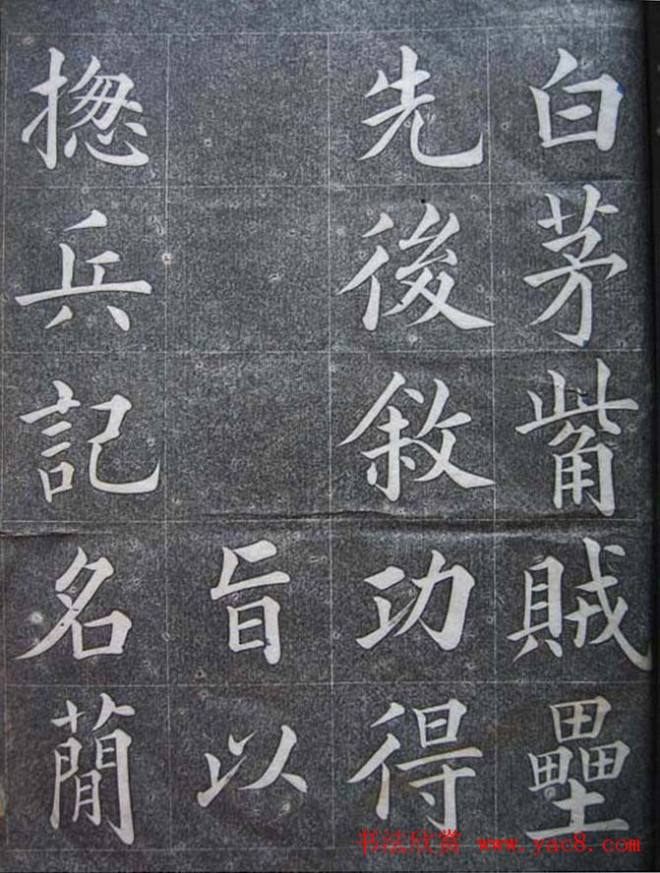 白茅觜賊壘
先後敘功得
旨以
揔兵記名簡
书法欣赏 www.yac8.com